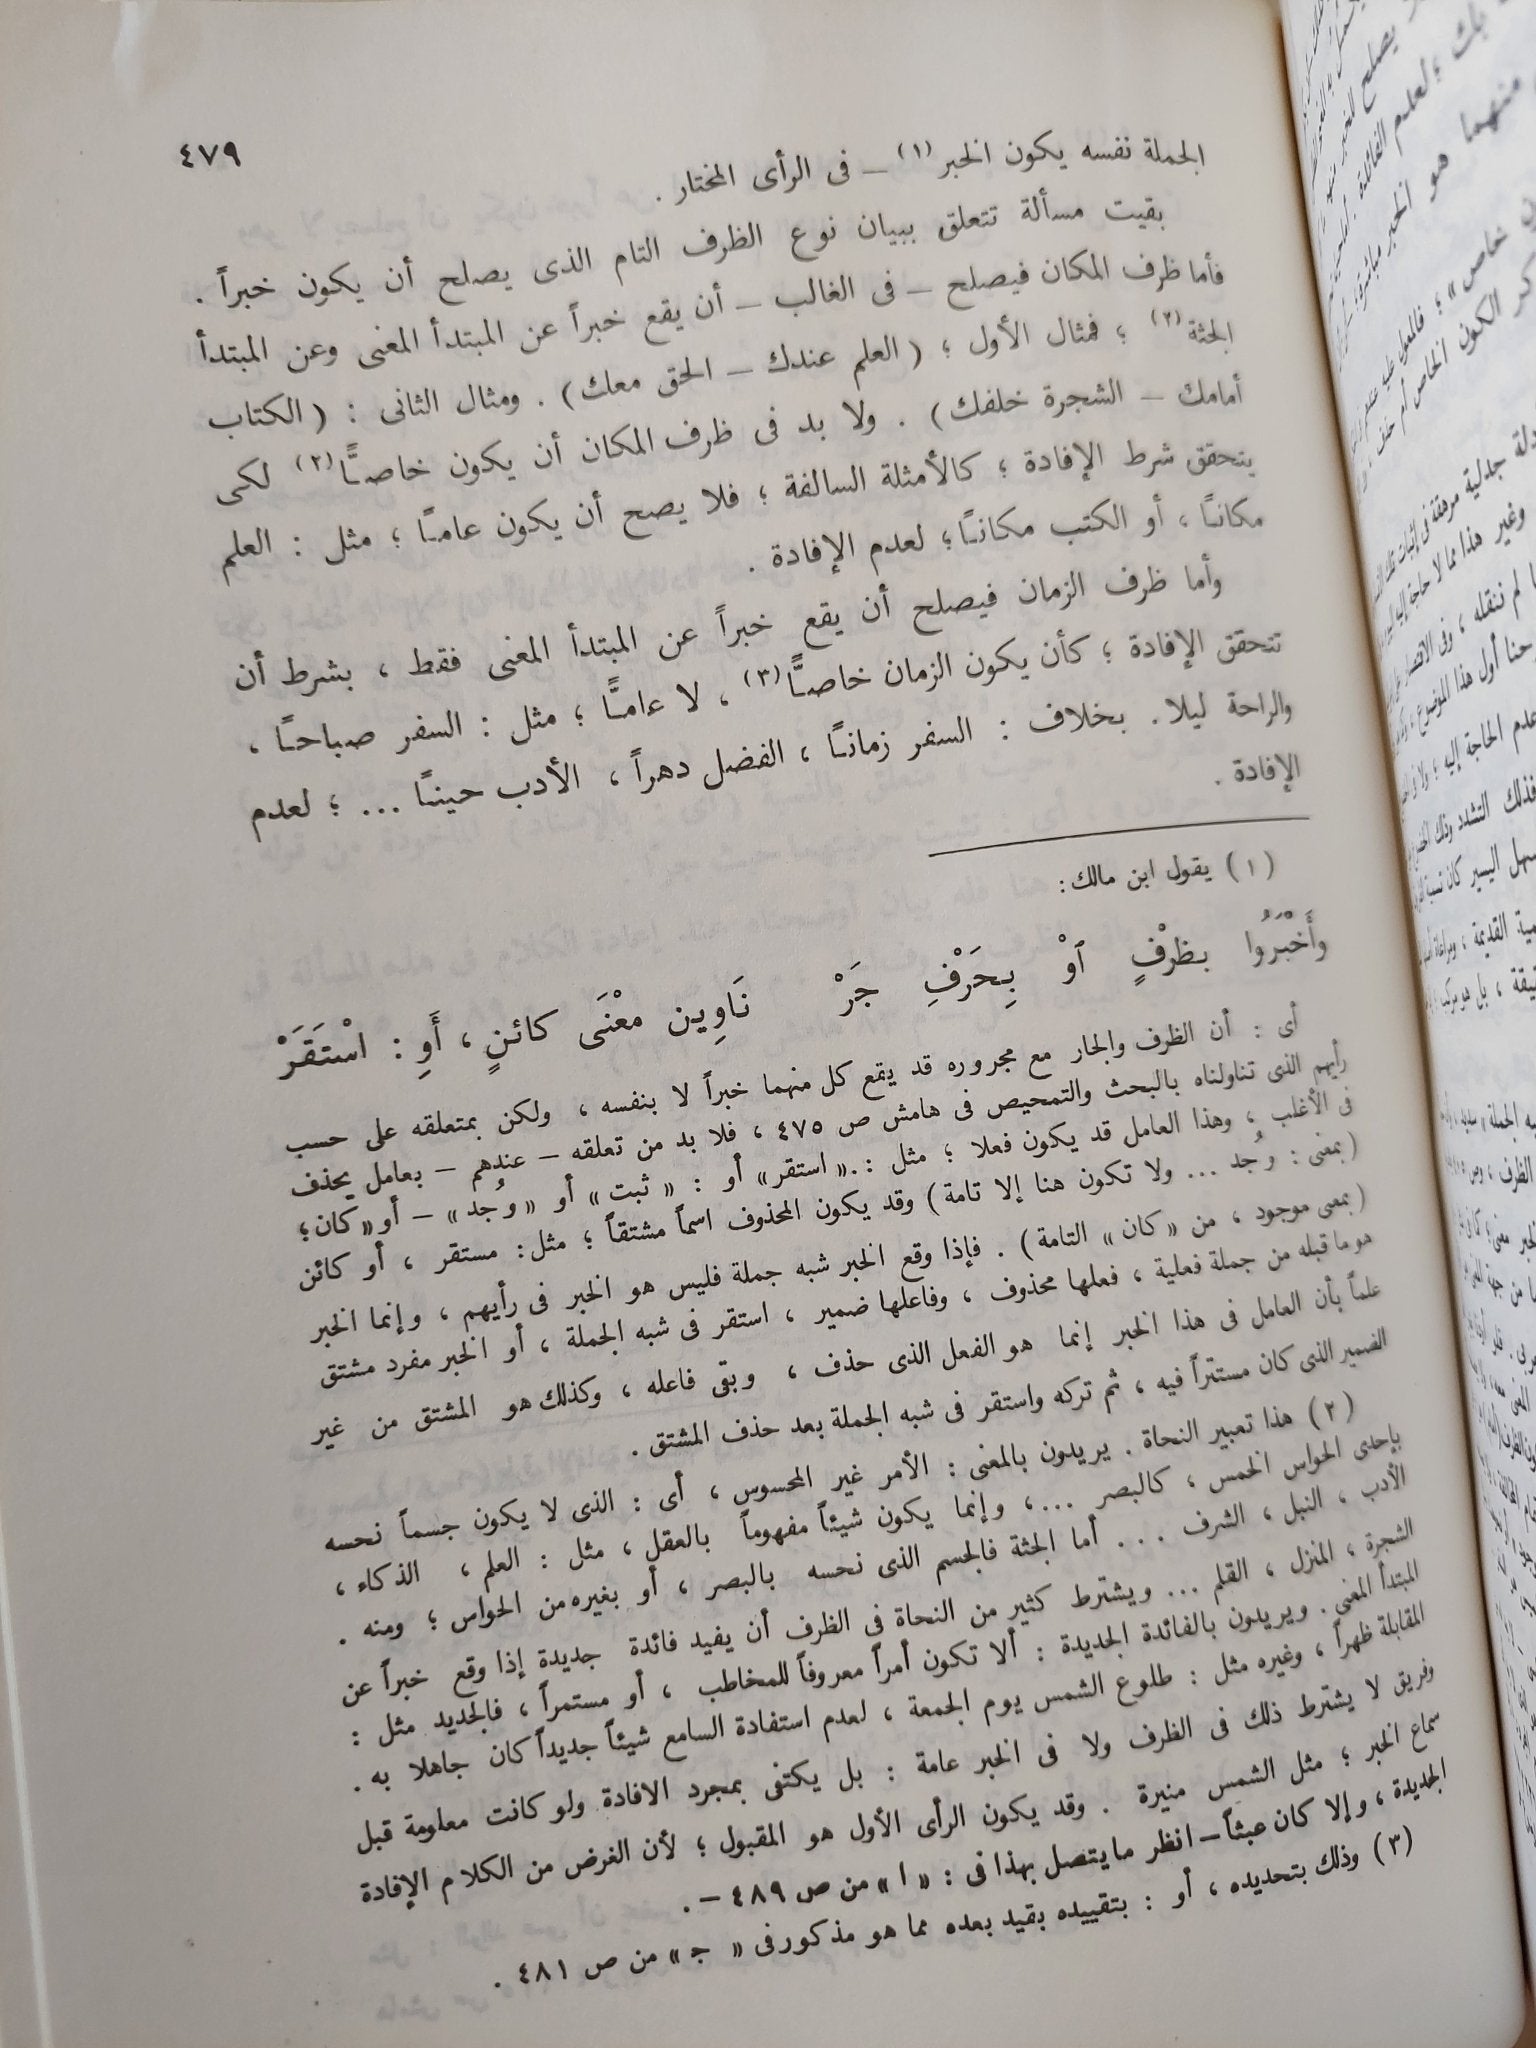 ٤٧٩
الجملة نفسه يكون الخبر (١) – فى الرأى المختار .
بقيت مسألة تتعلق ببيان نوع الظرف التام الذى يصلح أن يكون خبراً .
فأما ظرف المكان فيصلح – فى الغالب – أن يقع خبراً عن المبتدأ المعنى وعن المبتدأ
الجثة (٢) ؛ فمثال الأول ؛ ( العلم عندك – الحق معك ) . ومثال الثانى : ( الكتاب
أمامك – الشجرة خلفك ) . ولا بد فى ظرف المكان أن يكون خاصًّا (٢) لكى
يتحقق شرط الإفادة ؛ كالأمثلة السالفة ؛ فلا يصح أن يكون عامًا ؛ مثل : العلم
مكانًا ، أو الكتب مكانًا ؛ لعدم الإفادة .
وأما ظرف الزمان فيصلح أن يقع خبراً عن المبتدأ المعنى فقط ، بشرط أن
تتحقق الإفادة ؛ كأن يكون الزمان خاصًّا (٣) ، لا عامًّا ؛ مثل : السفر صباحًا ،
والراحة ليلا . بخلاف : السفر زمانًا ، الفضل دهراً ، الأدب حينًا ... ؛ لعدم
الإفادة .
( ١ ) يقول ابن مالك :
وأَخْبَرُوا بظرْفٍ أوْ بِحَرْفِ جَرْ نَاوِين معْنَى كائنٍ ، أَوِ : اسْتَقَرْ
أى : أن الظرف والجار مع مجروره قد يقع كل منهما خبراً لا بنفسه ، ولكن بمتعلقه على حسب
رأيهم الذى تناولناه بالبحث والتمحيص فى هامش ص ٤٧٥ ، فلا بد من تعلقه – عندهم – بعامل يحذف
فى الأغلب ، وهذا العامل قد يكون فعلا ؛ مثل : « استقر » أو : « ثبت » أو « وُجد » – أو « كان ؛
( بمعنى : وُجد ... ولا تكون هنا إلا تامة ) وقد يكون المحذوف اسماً مشتقاً ؛ مثل : مستقر ، أو كائن
( بمعنى موجود ، من « كان » التامة ) . فإذا وقع الخبر شبه جملة فليس هو الخبر فى رأيهم ، وإنما الخبر
هو ما قبله من جملة فعلية ، فعلها محذوف ، وفاعلها ضمير ، استقر فى شبه الجملة ، أو الخبر مفرد مشتق
علماً بأن العامل فى هذا الخبر إنما هو الفعل الذى حذف ، وبقى فاعله ، وكذلك هو المشتق من غير
الضمير الذى كان مستتراً فيه ، ثم تركه واستقر فى شبه الجملة بعد حذف المشتق .
( ٢ ) هذا تعبير النحاة . يريدون بالمعنى : الأمر غير المحسوس ، أى : الذى لا يكون جسماً نحسه
بإحدى الحواس الخمس ، كالبصر ... ، وإنما يكون شيئاً مفهوماً بالعقل ، مثل : العلم ، الذكاء ،
الأدب ، النبل ، الشرف ... أما الجثة فالجسم الذى نحسه بالبصر ، أو بغيره من الحواس ؛ ومنه .
الشجرة ، المنزل ، القلم ... ويشترط كثير من النحاة فى الظرف أن يفيد فائدة جديدة إذا وقع خبراً عن
المبتدأ المعنى . ويريدون بالفائدة الجديدة : ألا تكون أمراً معروفاً للمخاطب ، أو مستمراً ، فالجديد مثل :
المقابلة ظهراً ، وغيره مثل : طلوع الشمس يوم الجمعة ، لعدم استفادة السامع شيئاً جديداً كان جاهلا به .
وفريق لا يشترط ذلك فى الظرف ولا فى الخبر عامة : بل يكتفى بمجرد الافادة ولو كانت معلومة قبل
سماع الخبر ؛ مثل الشمس منيرة . وقد يكون الرأى الأول هو المقبول ؛ لأن الغرض من الكلام الإفادة
الجديدة ، وإلا كان عبثاً – انظر ما يتصل بهذا فى : « ا » من ص ٤٨٩ – .
( ٣ ) وذلك بتحديده ، أو : بتقييده بقيد بعده مما هو مذكور فى « ج » من ص ٤٨١ .